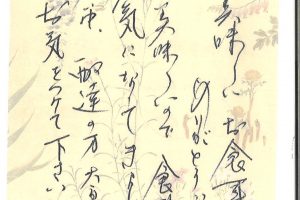 美味しいお食事
ありがとう
美味しいので食
気になってきま
配達の方大
お気をつけて下さい